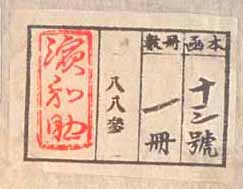 本函
十三號
冊數
一冊
八八參
濱和助